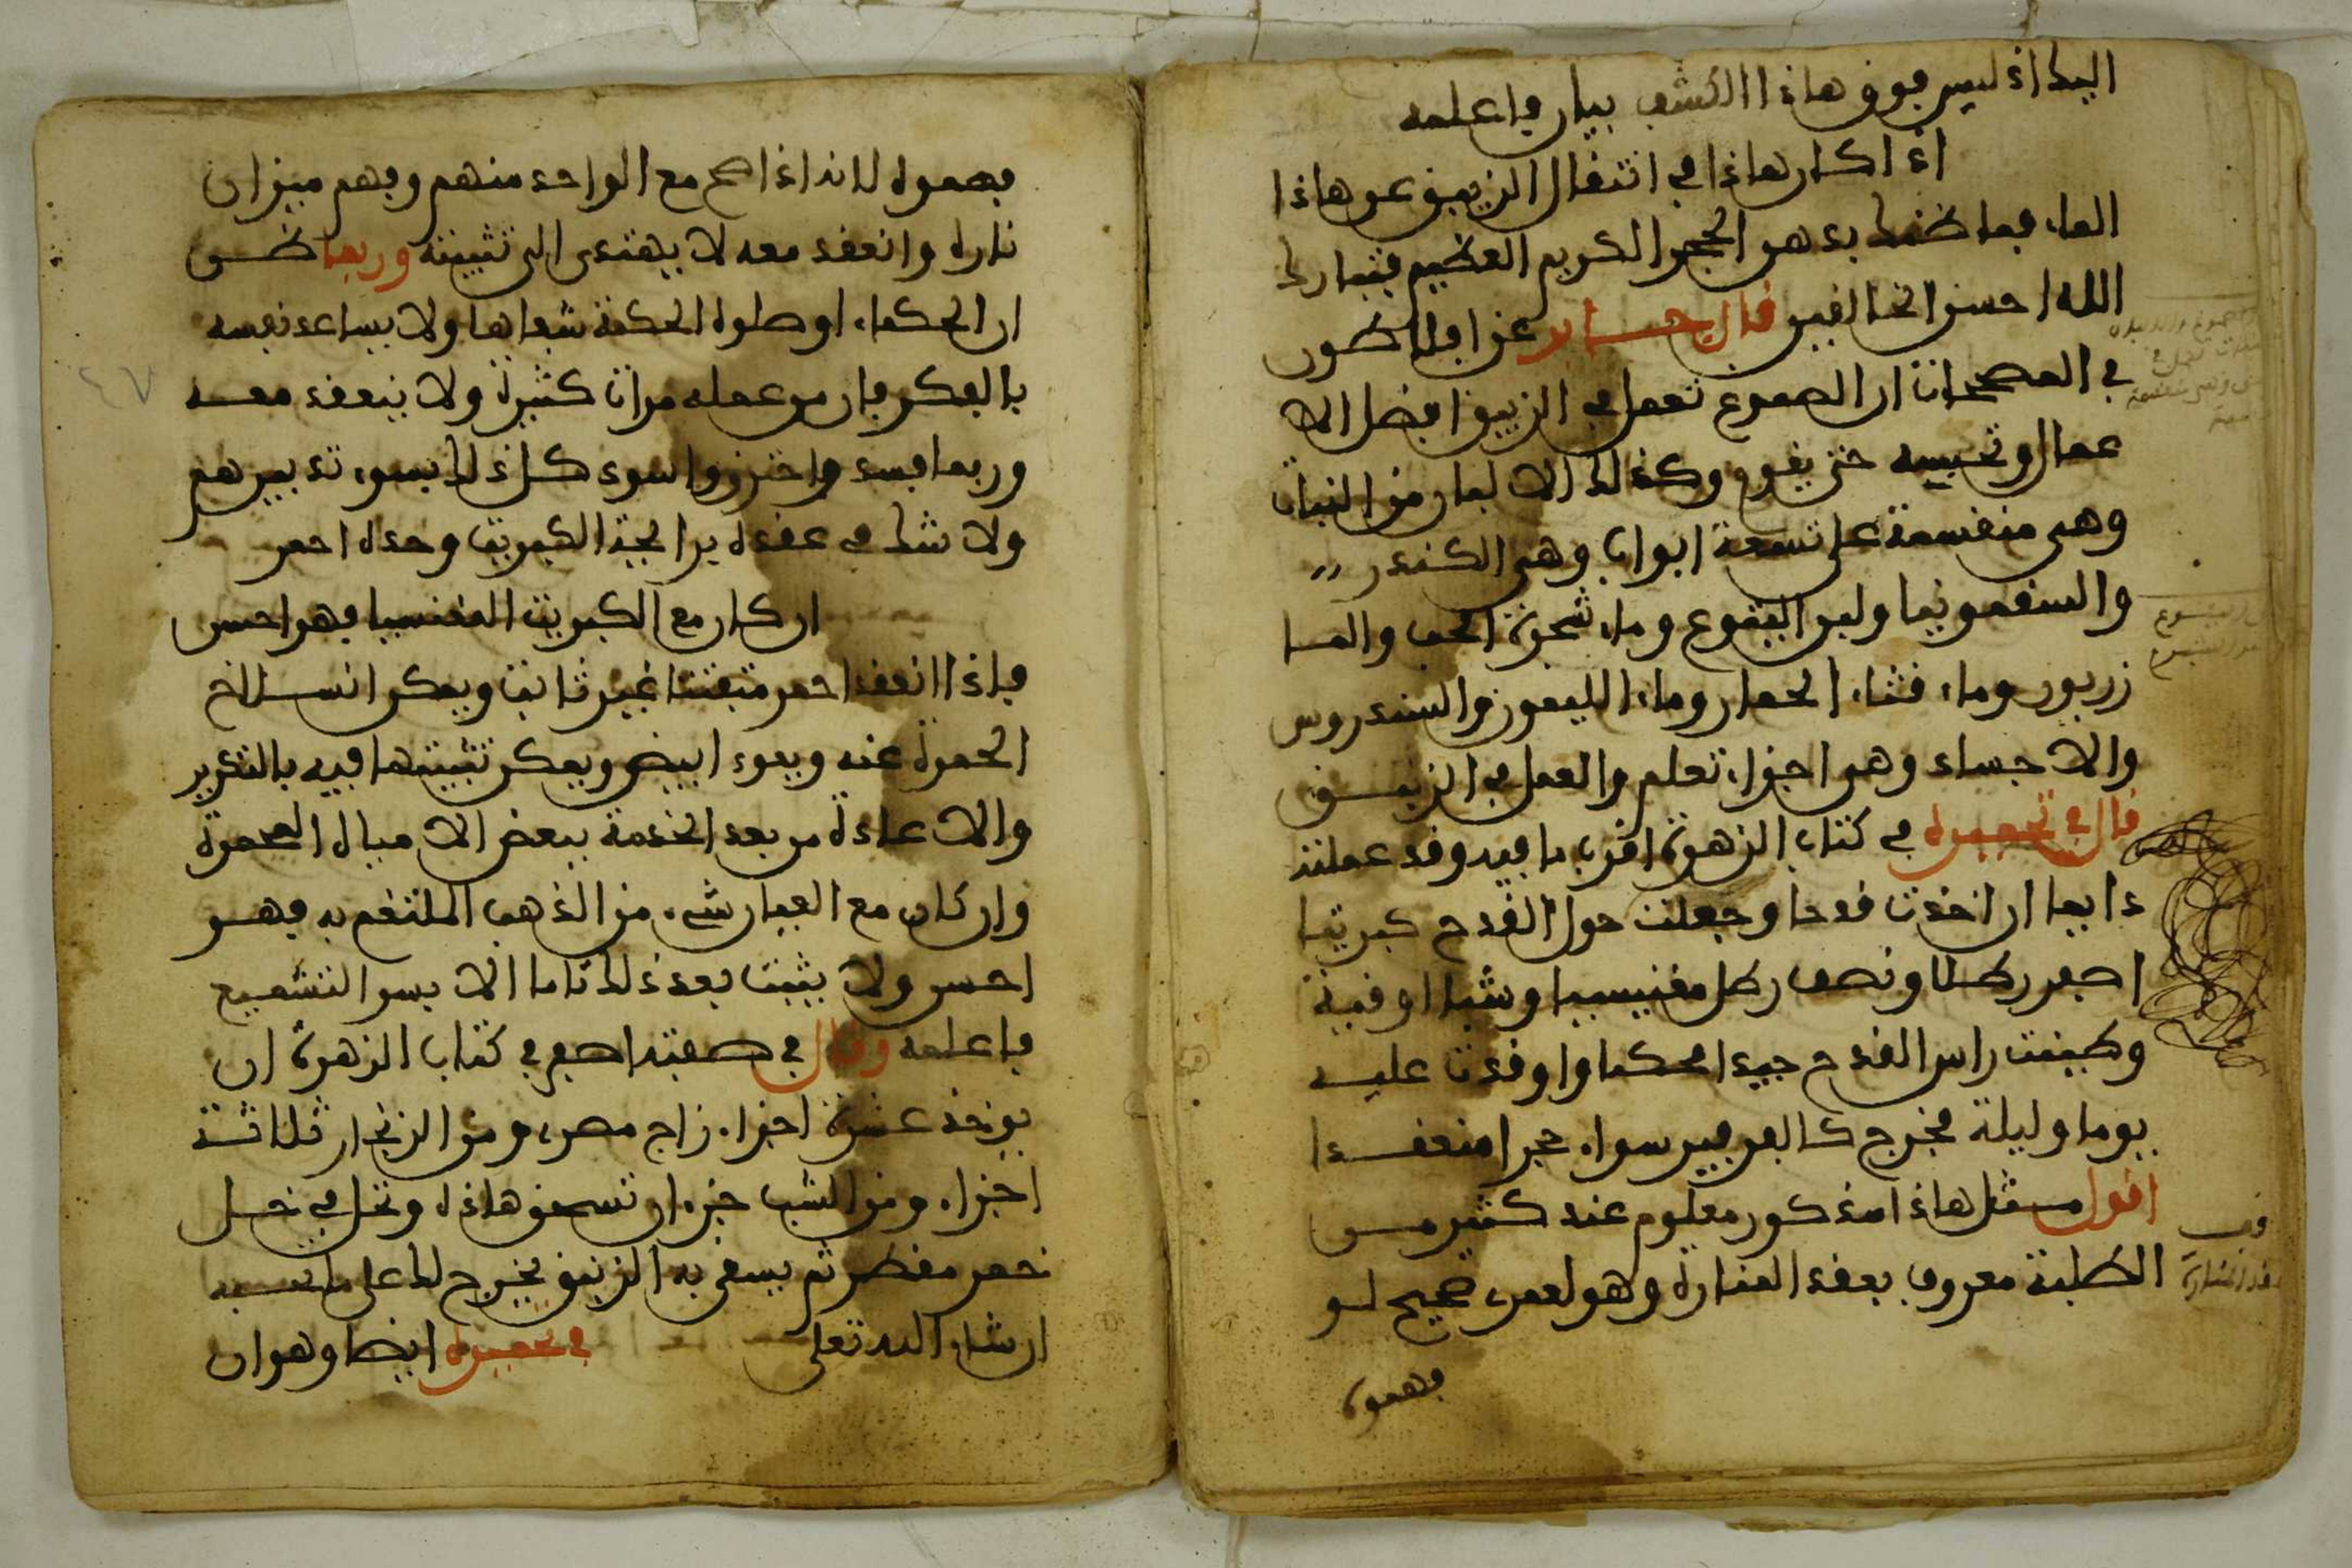 اليك اذ ليس فوق هاذا الكشف بيان فاعلمه
اذا كان هاذا في اثقال الزيبق عن هاذا
الماء فما ظنك بدهن الحجر الكريم العظيم فتبارك
الله احسن الخالقين قال عن افلاطون
في المصححات ان الصموغ تعمل في الزيبق افضل الا
عمال وتحبسه حتى يقوم وكذلك الالبان من النبات
وهي منقسمة على تسعة ابواب وهي الكندر
والسقمونيا ولبن اليتوع وماء شجرة الحب والما
زريون وماء قثاء الحمار وماء الليمون والسندروس
والاجساد وهو اجزاء تعلم والعمل في الزيبق
قال في تحميره في كتاب الزهرة اقرب ما فيه وقد عملته
دايما ان اخذت قدحا وجعلت حول القدح كبريتا
اصفر رطلا ونصف رطل مغنيسيا وشبا اوقية
وطينت راس القدح جيدا محكما واوقدت عليه
يوما وليلة فخرج كالفرفير سواء حجرا منعقدا
اقول مثل هاذا مذكور معلوم عند كثير من
الطلبة معروف بعقد المنارة وهو لعمري صحيح لو
فهموه
فهموه لانه اذا صح مع الواحد منهم وفهم ميزان
ناره وانعقد معه لا يهتدي الى تثبيته وربما ظن
ان الحكماء اوصلوه الحكمة شفاها ولا يساعد نفسه
بالفكر فان من عمله مرات كثيرة ولا ينعقد معه
وربما فسد واحترق واسود كل ذلك بسوء تدبيرهم
ولا شك في عقده برايحة الكبريت وحده احمر
ان كان مع الكبريت المغنسيا فهو احسن
فاذا انعقد احمر متفتتا غير ثابت ويمكن انسلاخ
الحمرة عنه ويعود ابيض ويمكن تثبيتها فيه بالتكرير
والاعادة من بعد الخدمة ببعض الامياه المحمرة
وان كان مع العيار شيء من الذهب الملتغم به فهو
احسن ولا يثبت بعد ذلك تاما الا بسر التشميع
فاعلمه وقال في صفته اصفر في كتاب الزهرة ان
يوخذ عشرة اجزاء زاج مصري ومن الزنجار ثلاثة
اجزاء ومن الشب جزء ان تسحق هاذه وتحل في خل
خمر مقطر ثم يسقى به الزيبق يخرج لك على ما تحبه
ان شاء الله تعلى في تحميره ايضا وهو ان